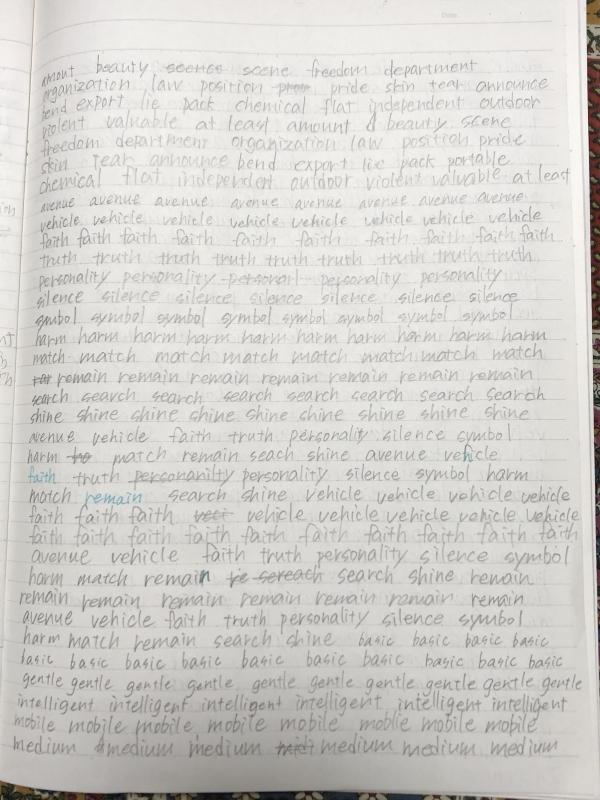 Date
amout beauty scence scene freedom department
organization law position prow pride skin tear announce
bend export lie pack chemical flat independent outdoor
violent valuable at least amount beauty scene
freedom department organization law position pride
skin tear announce bend export lie pack portable
chemical flat independent outdoor violent valuable at least
avenue avenue avenue avenue avenue avenue avenue avenue
vehicle vehicle vehicle vehicle vehicle vehicle vehicle vehicle
faith faith faith faith faith faith faith faith faith faith
truth truth truth truth truth truth truth truth truth
personality personality personarl personality personality
silence silence silence silence silence silence silence
symbol symbol symbol symbol symbol symbol symbol symbol
harm harm harm harm harm harm harm harm harm harm
match match match match match match match match
rar remain remain remain remain remain remain remain
search search search search search search search search
shine shine shine shine shine shine shine shine shine
avenue vehicle faith truth personality silence symbol
harm to match remain seach shine avenue vehicle
faith truth personanilty personality silence symbol harm
match remain search shine vehicle vehicle vehicle vehicle
faith faith faith veci vehicle vehicle vehicle vehicle vehicle
faith faith faith faith faith faith faith faith faith faith
avenue vehicle faith truth personality silence symbol
harm match remain re sereach search shine remain
remain remain remain remain remain remain remain
avenue vehicle faith truth personality silence symbol
harm match remain search shine basic basic basic basic
basic basic basic basic basic basic basic basic basic
gentle gentle gentle gentle gentle gentle gentle gentle gentle gentle
intelligent intelligent intelligent intelligent intelligent intelligent
mobile mobile mobile mobile mobile moblie mobile mobile
medium medium medium midi medium medium medium